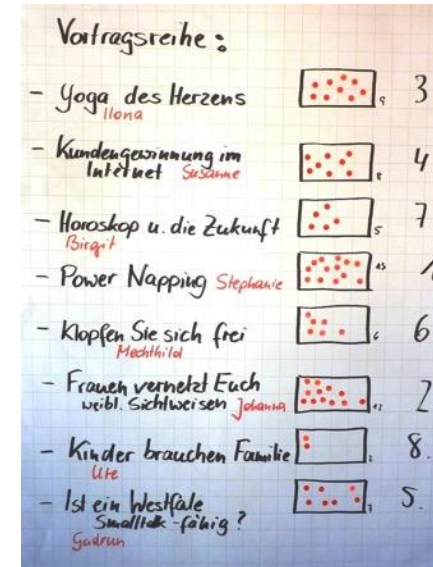 Vortragsreihe:
- Yoga des Herzens 9 3
Ilona
- Kundengewinnung im
Internet Susanne 8 4
- Horoskop u. die Zukunft 5 7
Birgit
- Power Napping Stephanie 13
- Klopfen Sie sich frei 6 6
Mechthild
- Frauen vernetzt Euch
weibl. Sichtweisen Johanna 12 2
- Kinder brauchen Familie 2 8.
Ute
- Ist ein Westfale 7 5.
Smalltalk-fähig?
Gudrun